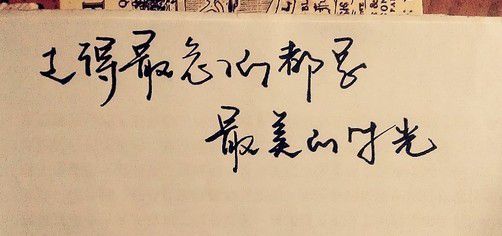 走得最急的都是
最美的时光